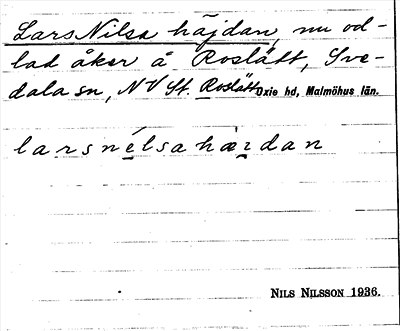 Lars Nilsa häjdan, nu od-
lad åker å Roslätt, Sve-
dala sn, NV St. Roslätt Oxie hd, Malmöhus län.
larsnélsahæzdan
NILS NILSSON 1936.